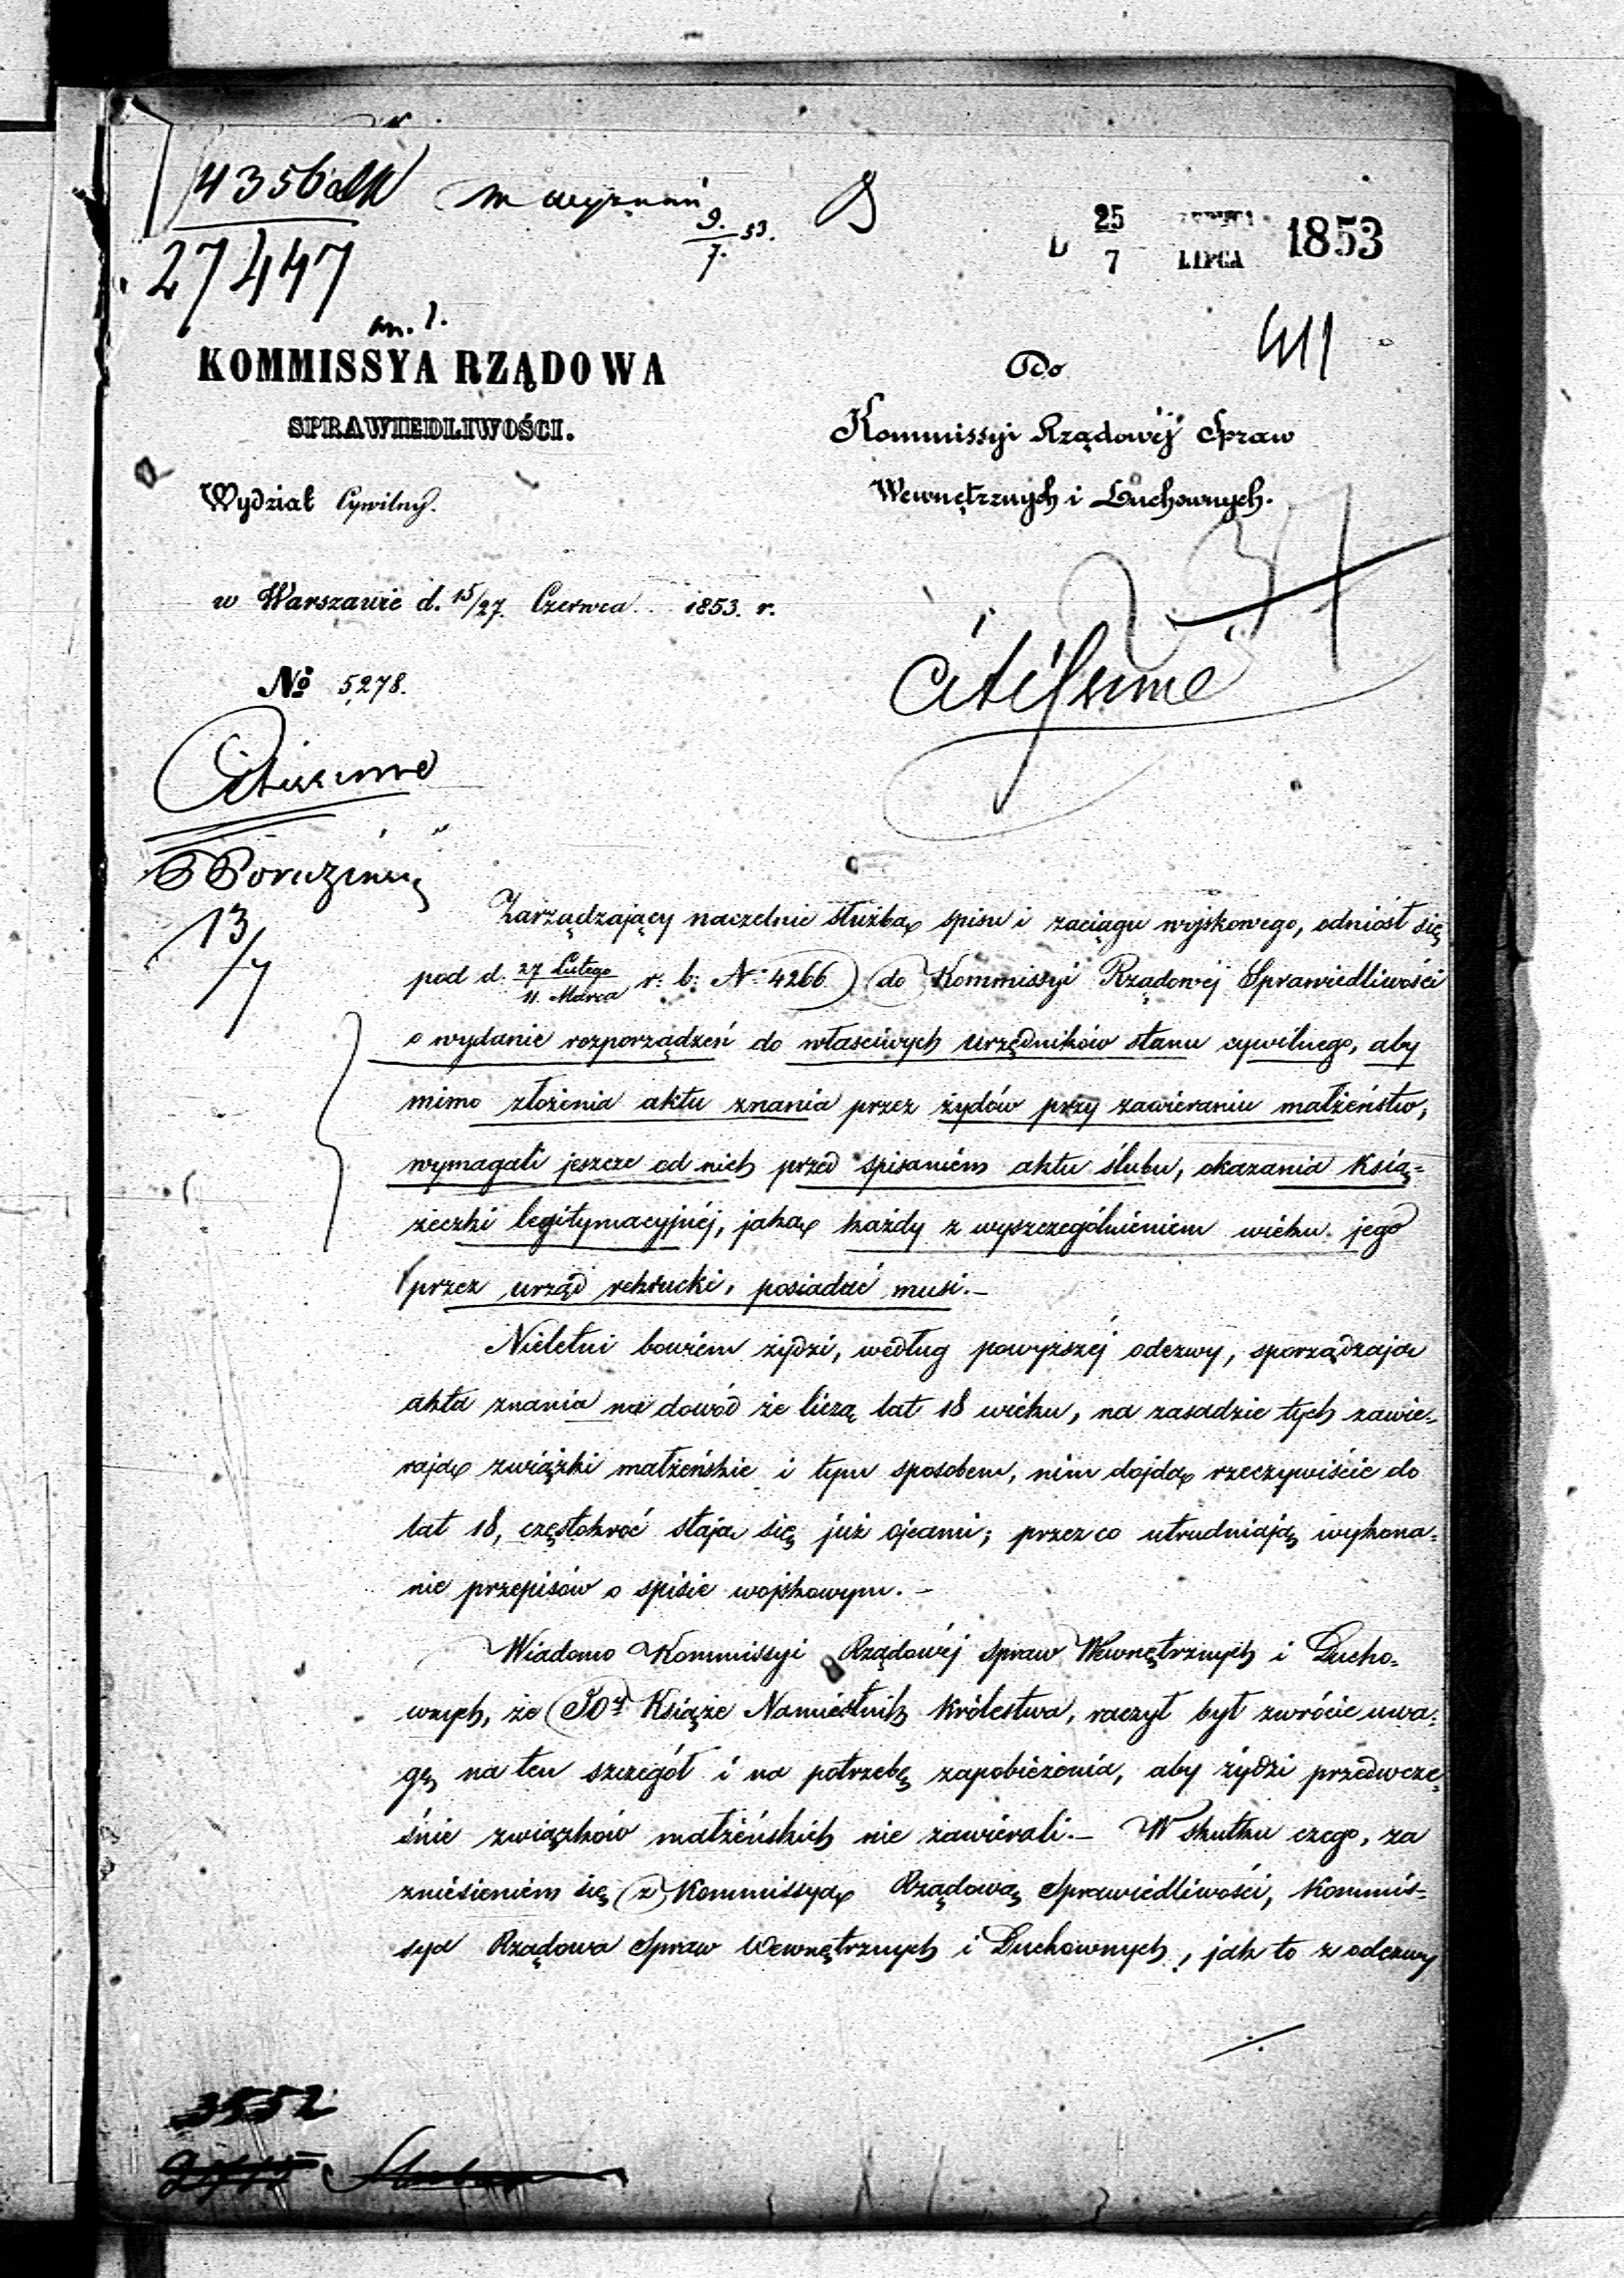 4356
27447
9./7. 53.
25 7 LIPCA 1853
411
KOMMISSYA RZĄDOWA
SPRAWIEDLIWOŚCI.
Wydział Cywilny.
w Warszawie d. 15/27. Czerwca 1853. r.
№ 5278.
Do
Kommissyi Rządowéj Spraw
Wewnętrznych i Duchownych.
Citissime
Citissime
13/7
Zarządzający naczelnie służbą spisu i zaciągu wojskowego, odniósł się
pod d. 27 Lutego/11. Marca r: b: N: 4266 do Kommissyi Rządowéj Sprawiedliwości
o wydanie rozporządzeń do właściwych urzędników stanu cywilnego, aby
mimo złożenia aktu znania przez żydów przy zawieraniu małżeństw,
wymagali jeszcze od nich przed spisaniem aktu ślubu, okazania ksią=
żeczki legitymacyjnéj, jaką każdy z wyszczególnieniem wieku jego
przez urząd rekrucki, posiadać musi.—
Nieletni bowiem żydzi, według powyższéj odezwy, sporządzają
akta znania na dowód że liczą lat 18 wieku, na zasadzie tych zawie=
rają związki małżeńskie i tym sposobem, nim dojdą rzeczywiście do
lat 18, częstokroć stają się już ojcami; przez co utrudniają wykona=
nie przepisów o spisie wojskowym.—
Wiadomo Kommissyi Rządowéj Spraw Wewnętrznych i Ducho=
wnych, że JO. Książe Namiestnik Królestwa, raczył był zwrócić uwa=
gę na ten szczegół i na potrzebę zapobieżenia, aby żydzi przedwcze=
śnie związków małżeńskich nie zawiérali.— W skutku czego, za
zniesieniem się z Kommissyą Rządową Sprawiedliwości, Kommis=
sya Rządowa Spraw Wewnętrznych i Duchownych, jak to z odezwy
3552